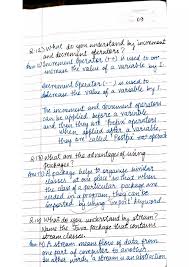 09
Q.12) What do you understand by increment
and decrement operators?
Ans 12) Increment Operator (++) is used to
increase the value of a variable by 1.
Decrement Operator (--) is used to
decrease the value of a variable by 1.
The increment and decrement operators
can be applied before a variable,
and then they are Prefix operators
When applied after a variable,
they are called "Postfix" operators
Q.13) What are the advantages of using
packages?
Ans 13) A package helps to organise similar
classes at one place so that when
the class of a particular package are
needed in a program, they can be
imported by using import keyword.
Q.14) What do you understand by stream?
Name the Java package that contains
stream classes.
Ans 14) A stream means flow of data from
one part of computer to another.
In other words, a stream is an abstraction